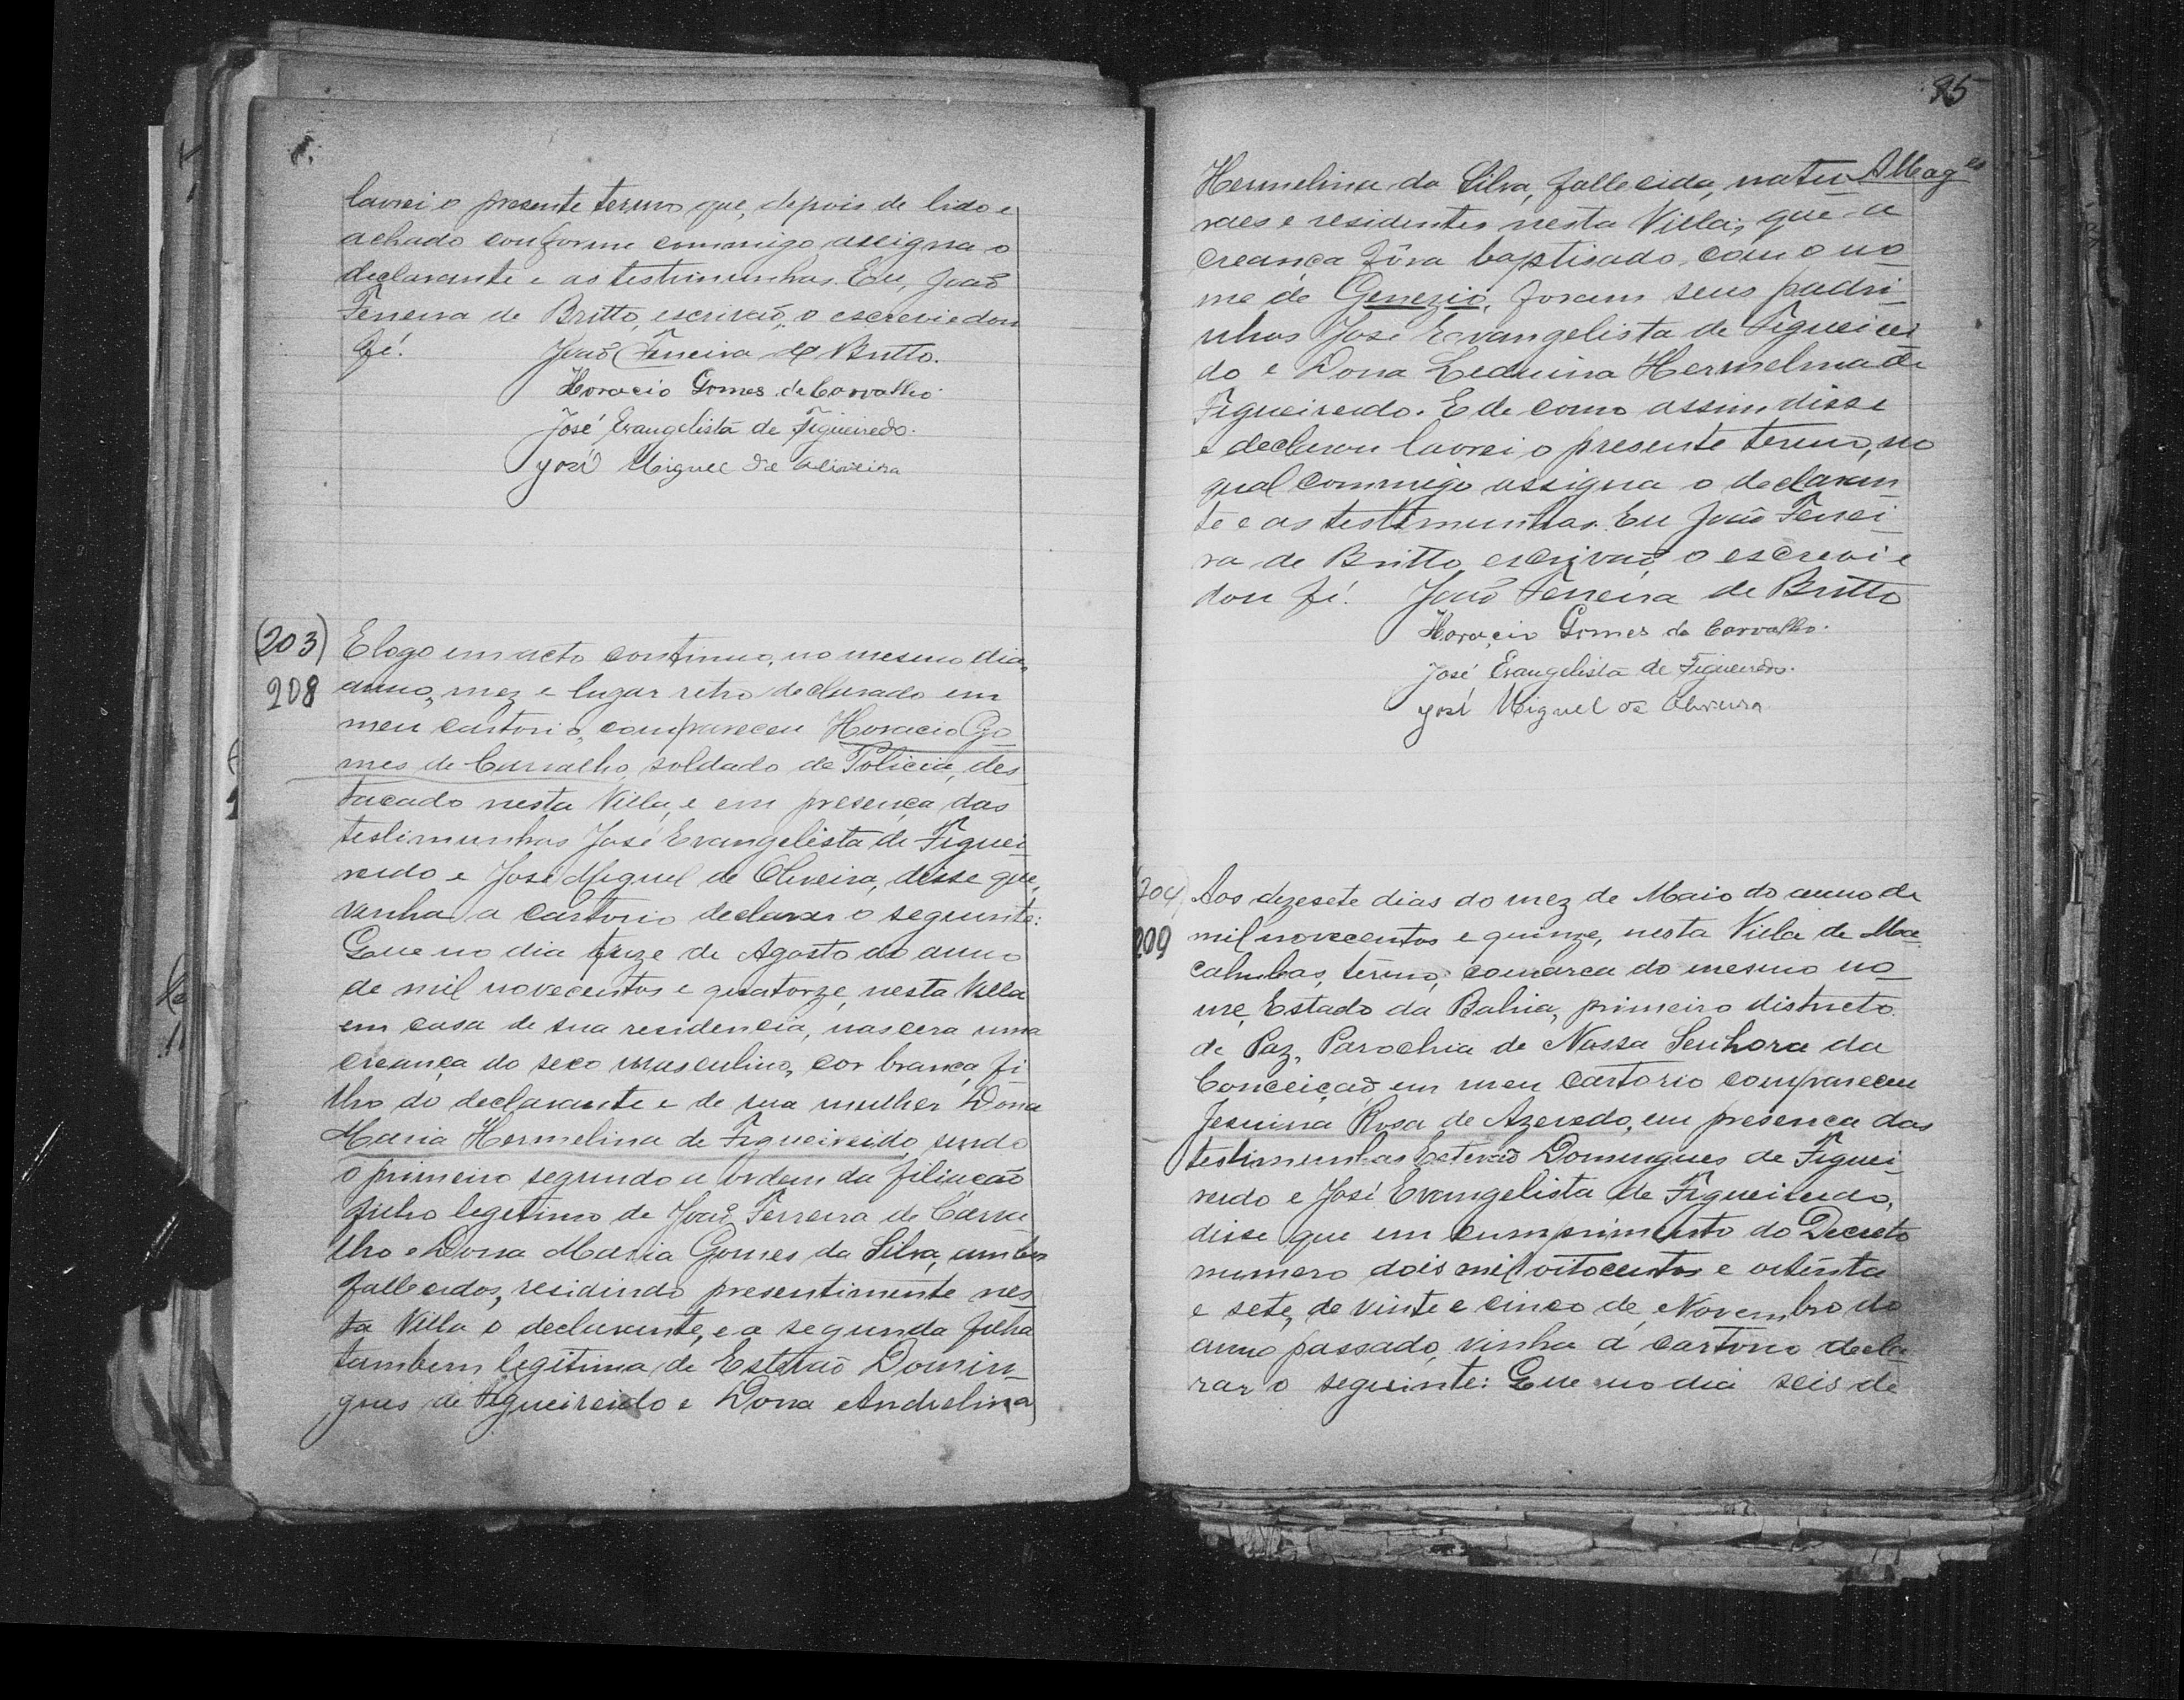 lavrei o presente termo que, depois de lido e
achado conforme commigo assigna o
declarante e as testimunhas. Eu, João
Ferreira de Britto, escrivão, o escrevi e dou
fé. João Ferreira de Britto.
Horacio Gomes de Carvalho.
José Evangelista de Figueiredo.
José Miguel de Oliveira
(203)
208
E logo em acto continuo, no mesmo dia,
anno, mez e lugar retro declarado em
meu cartorio, compareceu Horacio Go
mes de Carvalho, soldado de Policia, des
tacado nesta Villa, e em presença das
testimunhas José Evangelista de Figuei
redo e José Miguel de Oliveira, disse que,
vinha a cartorio declarar o seguinte:
Que no dia treze de Agosto do anno
de mil novecentos e quatorze, nesta Villa
em casa de sua residencia, nascera uma
creança do sexo masculino, cor branca, fi
lho do declarante e de sua mulher Dona
Maria Hermelina de Figueireido, sendo
o primeiro segundo a ordem da filiação
filho legitimo de João Ferreira de Carva
lho e Dona Maria Gomes da Silva, ambos
fallecidos, residindo presentimente nes
ta Villa o declarante, e a segunda filha
tambem legitima de Estevão Domin_
gues de Figueireido e Dona Andrelina
95
Hermelina da Silva, fallecida, natu
raes e residentes nesta Villa; que a
creança fôra baptisado com o no
me de Genezio, foram seus padri_
nhos José Evangelista de Figueirei
do e Dona Hermelina de
Figueireido. E de como assim disse
e declarou lavrei o presente termo, no
qual commigo assigna o declaran
te e as testimunhas. Eu João Ferrei_
ra de Britto, escrivão o escrevi e
dou fé. João Ferreira de Britto
Horacio Gomes de Carvalho.
José Evangelista de Figueiredo.
José Miguel de Oliveira
(204)
209
Aos dezesete dias do mez de Maio do anno de
mil novecentos e quinze, nesta Villa de Ma
cahubas, termo, comarca do mesmo no_
me, Estado da Bahia, primeiro districto
de Paz, Parochia de Nossa Senhora da
Conceição em meu cartorio compareceu
Jesuina Rosa de Azevedo, em presença das
testimunhas Estevão Domingues de Figuei_
redo e José Evangelista de Figueireido,
disse que em cumprimento do Decreto
numero dois mil oitocentos e oitenta
e sete, de vinte e cinco de Novembro do
anno passado, vinha á cartorio decla
rar o seguinte: Que no dia seis de